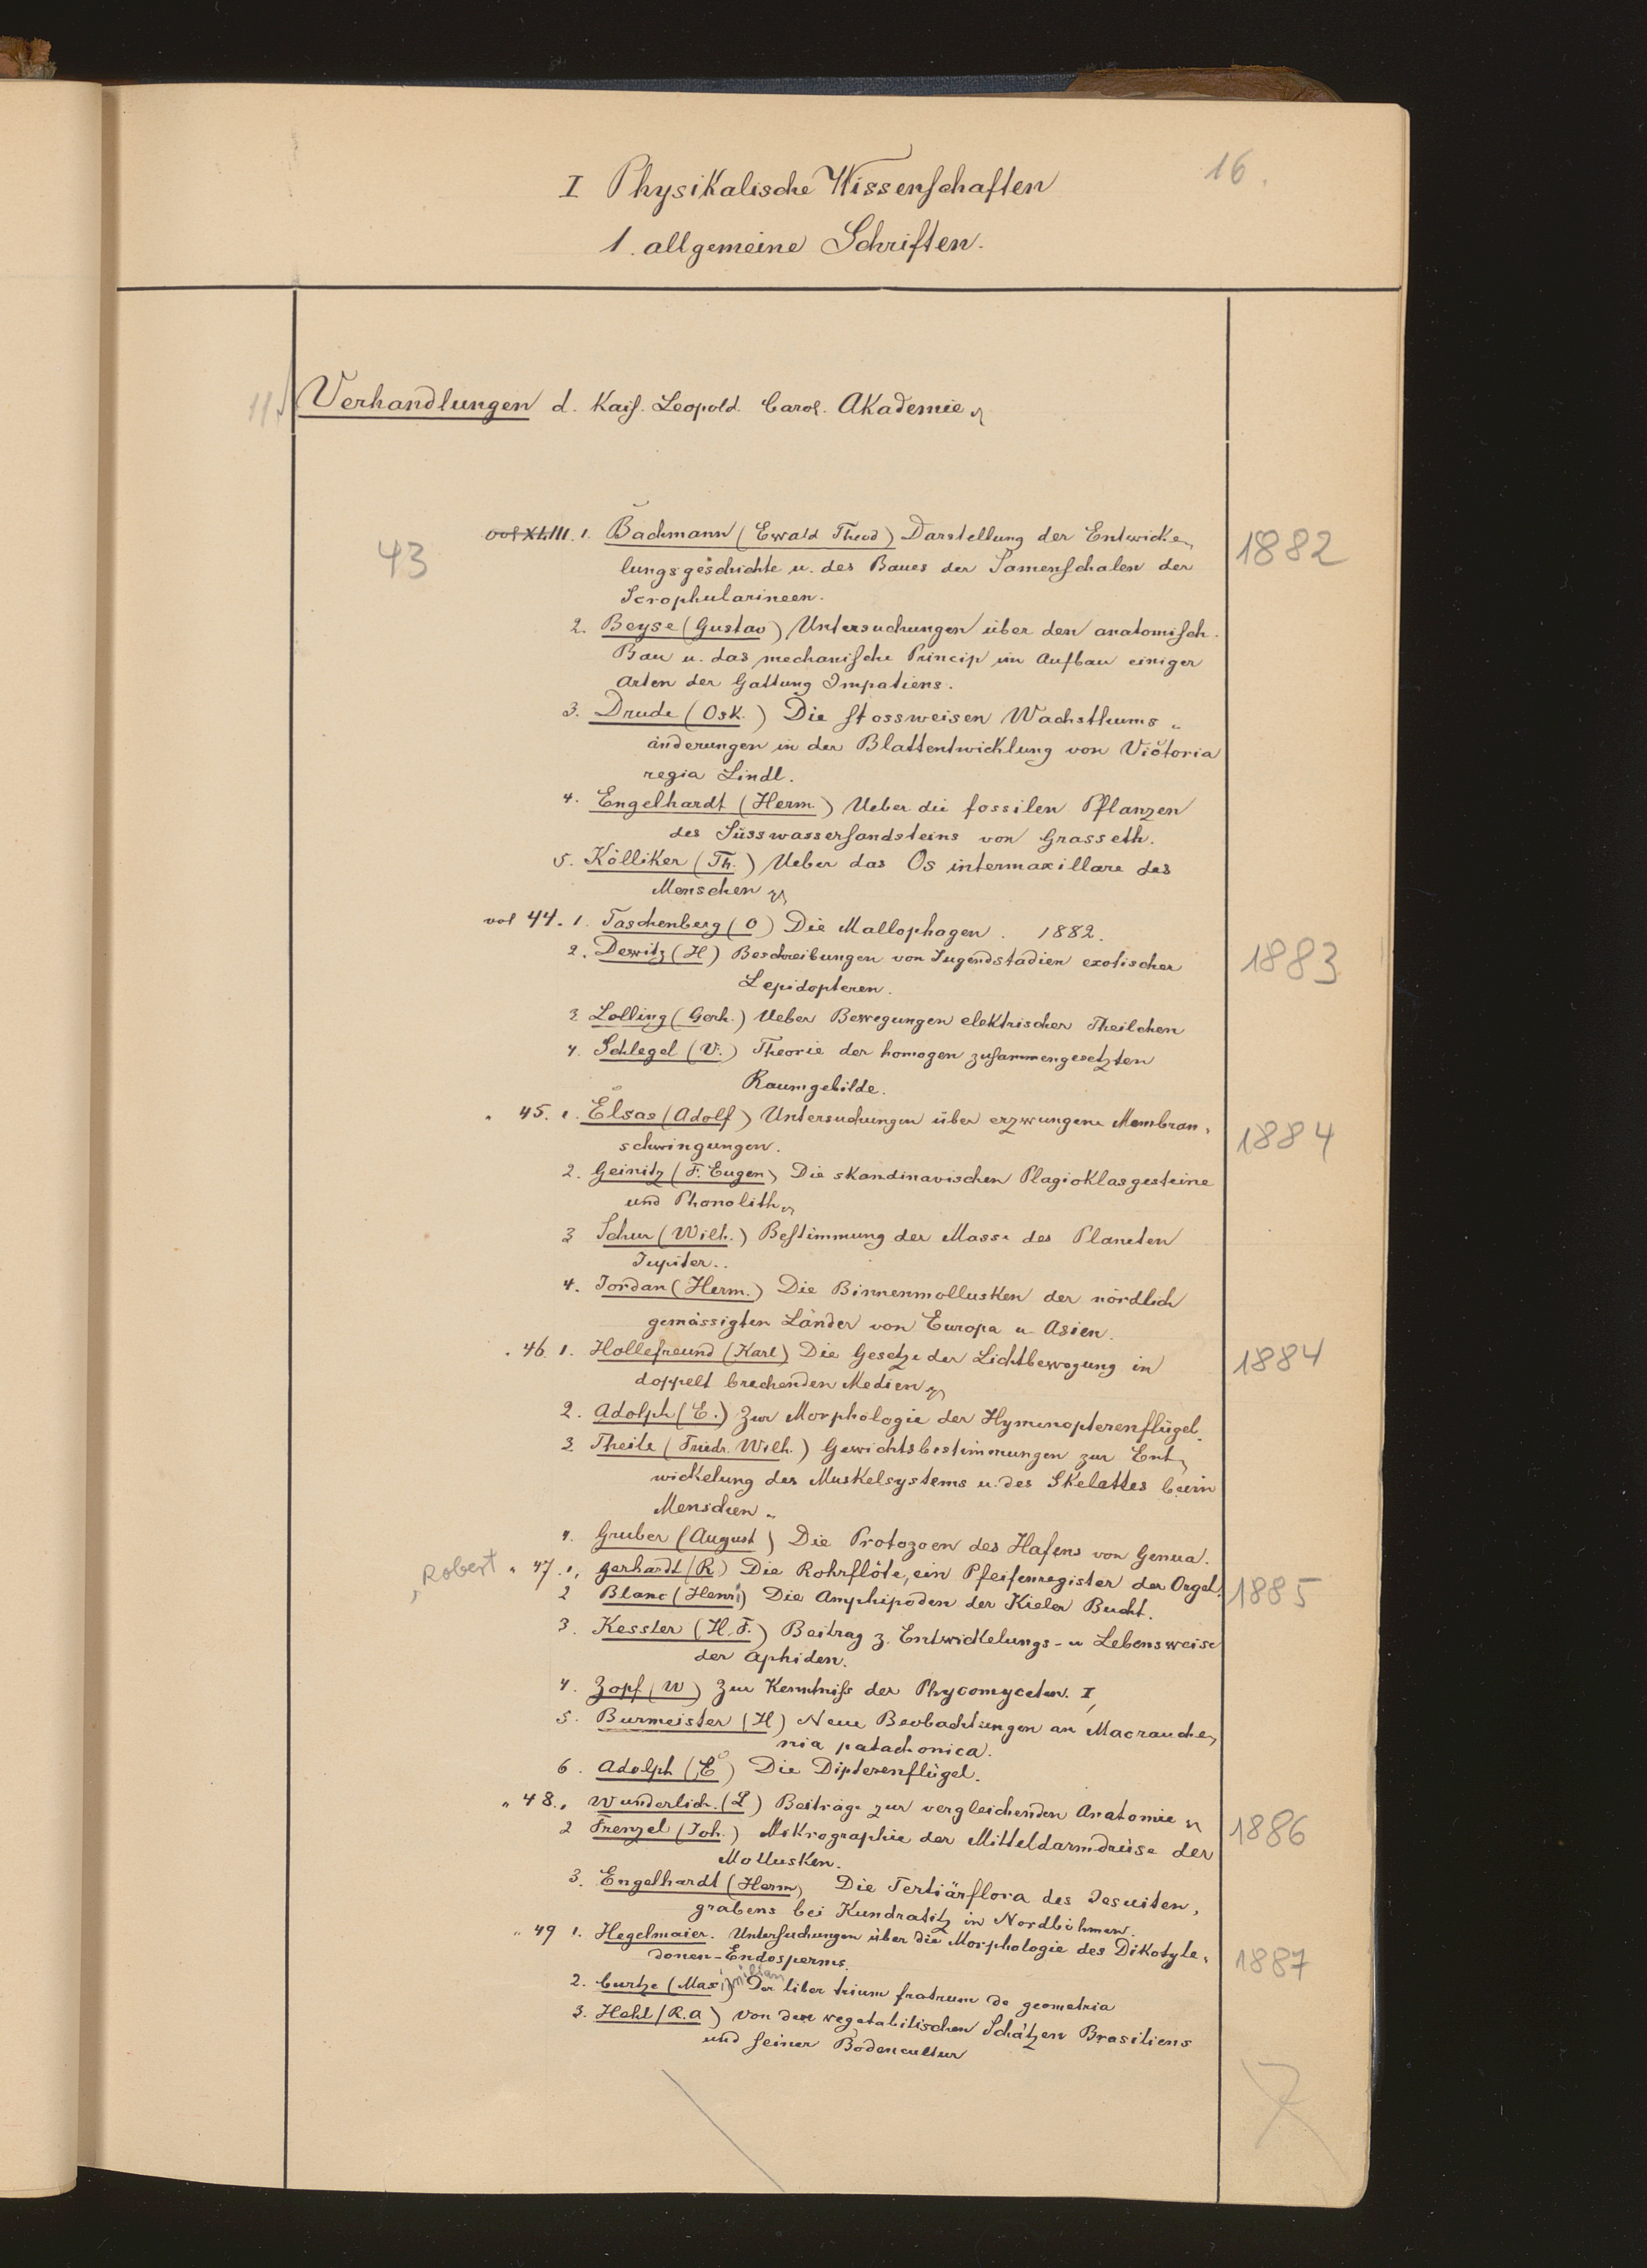 16.
I Physikalische Wissenschaften
1. allgemeine Schriften.
11. Verhandlungen d. Kais. Leopold. Carol. Akademie
43 vol XLIII. 1. Bachmann (Ewald Theod) Darstellung der Entwicke- 1882
lungsgeschichte u. des Baues der Samenschalen der
Scrophularineen.
2. Beyse (Gustav) Untersuchungen über den anatomisch.
Bau u. das mechanische Princip im Aufbau einiger
Arten der Gattung Impatiens.
3. Drude (Osk.) Die stossweisen Wachsthums-
änderungen in der Blattentwicklung von Victoria
regia Lindl.
4. Engelhardt (Herm) Ueber die fossilen Pflanzen
des Süsswassersandsteins von Grasseth.
5. Kölliker (Th.) Ueber das Os intermaxillare des
Menschen
vol 44. 1. Taschenberg (O) Die Mallophagen. 1882.
2. Dewitz (H) Beschreibungen von Jugendstadien exotischer 1883
Lepidopteren.
3 Lolling (Gerh.) Ueber Bewegungen elektrischer Theilchen
4. Schlegel (V.) Theorie der homogen zusammengesetzten
Raumgebilde.
" 45. 1. Elsas (Adolf) Untersuchungen über erzwungene Membran- 1884
schwingungen.
2. Geinitz (F. Eugen) Die skandinavischen Plagioklasgesteine
und Phonolith
3 Schur (Wilh.) Bestimmung der Masse des Planeten
Jupiter..
4. Jordan (Herm.) Die Binnenmollusken der nördlich
gemässigten Länder von Europa u. Asien.
" 46 1. Hollefreund (Karl) Die Gesetze der Lichtbewegung in 1884
doppelt brechenden Medien
2. Adolph (E.) Zur Morphologie der Hymenopterenflügel.
3. Theile (Friedr. Wilh.) Gewichtsbestimmungen zur Ent-
wickelung des Muskelsystems u. des Skelettes beim
Menschen.
4. Gruber (August) Die Protozoen des Hafens von Genua.
, Robert " 47. 1, Gerhardt (R) Die Rohrflöte, ein Pfeifenregister der Orgel. 1885
2 Blanc (Henri) Die Amphipoden der Kieler Bucht.
3. Kessler (H. F.) Beitrag z. Entwickelungs- u Lebensweise
der Aphiden.
4. Zopf (W) Zur Kenntniss der Phycomyceten. I,
5. Burmeister (H) Neue Beobachtungen an Macrauche-
nia patachonica.
6. Adolph (E) Die Dipterenflügel.
" 48., Wunderlich. (L) Beiträge zur vergleichenden Anatomie 1886
2 Frenzel (Joh.) Mikrographie der Mitteldarmdrüse der
Mollusken.
3. Engelhardt (Herm) Die Tertiärflora des Jesuiten-
grabens bei Kundratitz in Nordböhmen.
" 49 1. Hegelmaier. Untersuchungen über die Morphologie des Dikotyle- 1887
donen-Endosperms.
2. Curtze (Maximilian) Der liber trium fratrum de geometria
3. Hehl (R. A) Von den vegetabilischen Schätzen Brasiliens
und seiner Bodencultur